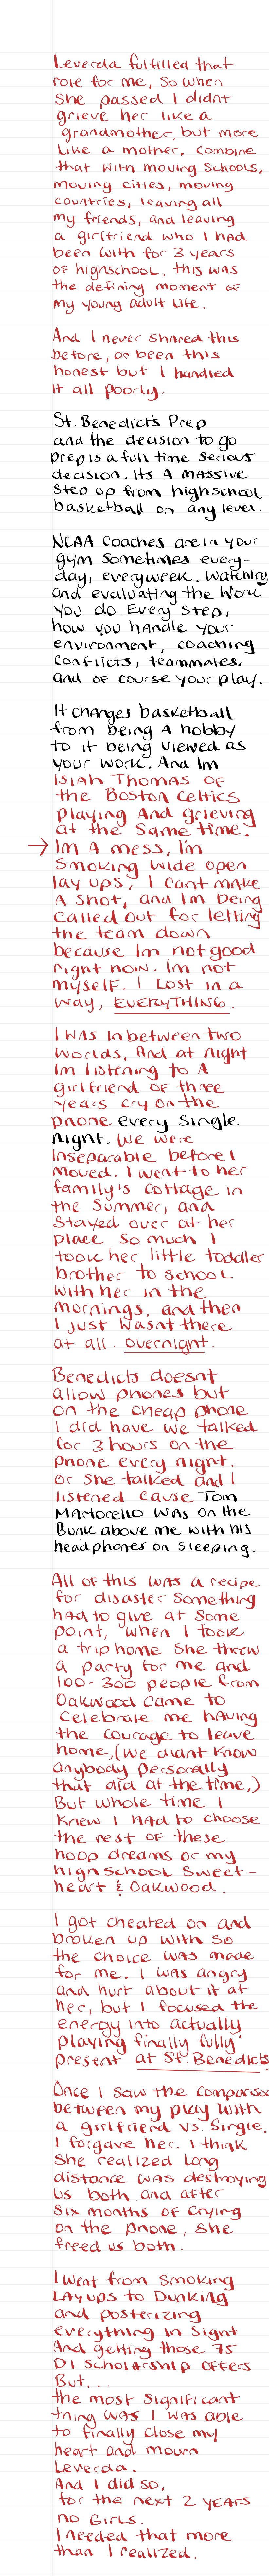 Leverda fulfilled that
role for me, so when
she passed I didnt
grieve her like a
grandmother, but more
like a mother. Combine
that with moving schools,
moving cities, moving
countries, leaving all
my friends, and leaving
a girlfriend who I had
been with for 3 years
of highschool, this was
the defining moment of
my young adult life.
And I never shared this
before, or been this
honest but I handled
it all poorly.
St. Benedict's Prep
and the decision to go
prep is a full time serious
decision. Its a massive
step up from highschool
basketball on any level.
NCAA Coaches are in your
gym sometimes every-
day, everyweek. Watching
and evaluating the work
you do. Every step,
how you handle your
environment, coaching
conflicts, teammates,
and of course your play.
It changes basketball
from being a hobby
to it being viewed as
your work. And Im
Isiah Thomas of
the Boston Celtics
playing and grieving
at the same time.
→ Im a mess, I'm
smoking wide open
lay ups, I cant make
a shot, and Im being
called out for letting
the team down
because Im not good
right now. Im not
myself. I lost in a
way, EVERYTHING.
I was inbetween two
worlds, and at night
Im listening to a
girlfriend of three
years cry on the
phone every single
night. We were
inseparable before I
moved. I went to her
family's cottage in
the summer, and
stayed over at her
place so much I
took her little toddler
brother to school
with her in the
mornings, and then
I just wasnt there
at all. overnight.
Benedicts doesnt
allow phones but
on the cheap phone
I did have we talked
for 3 hours on the
phone every night.
Or she talked and I
listened cause Tom
Martorello was on the
bunk above me with his
headphones on sleeping.
All of this was a recipe
for disaster something
had to give at some
point, when I took
a trip home she threw
a party for me and
100-300 people from
Oakwood came to
celebrate me having
the courage to leave
home, (we didnt know
anybody personally
that did at the time,)
But whole time I
knew I had to choose
the rest of these
hoop dreams or my
highschool sweet-
heart & Oakwood.
I got cheated on and
broken up with so
the choice was made
for me. I was angry
and hurt about it at
her, but I focused the
energy into actually
playing finally fully
present at St. Benedicts.
Once I saw the comparison
between my play with
a girlfriend vs single.
I forgave her. I think
she realized long
distance was destroying
us both and after
six months of crying
on the phone, she
freed us both.
I went from smoking
layups to dunking
and posterizing
everything in sight
And getting those 75
D1 scholarship offers
But...
the most significant
thing was I was able
to finally close my
heart and mourn
Leverda.
And I did so,
for the next 2 years
no girls.
I needed that more
than I realized.